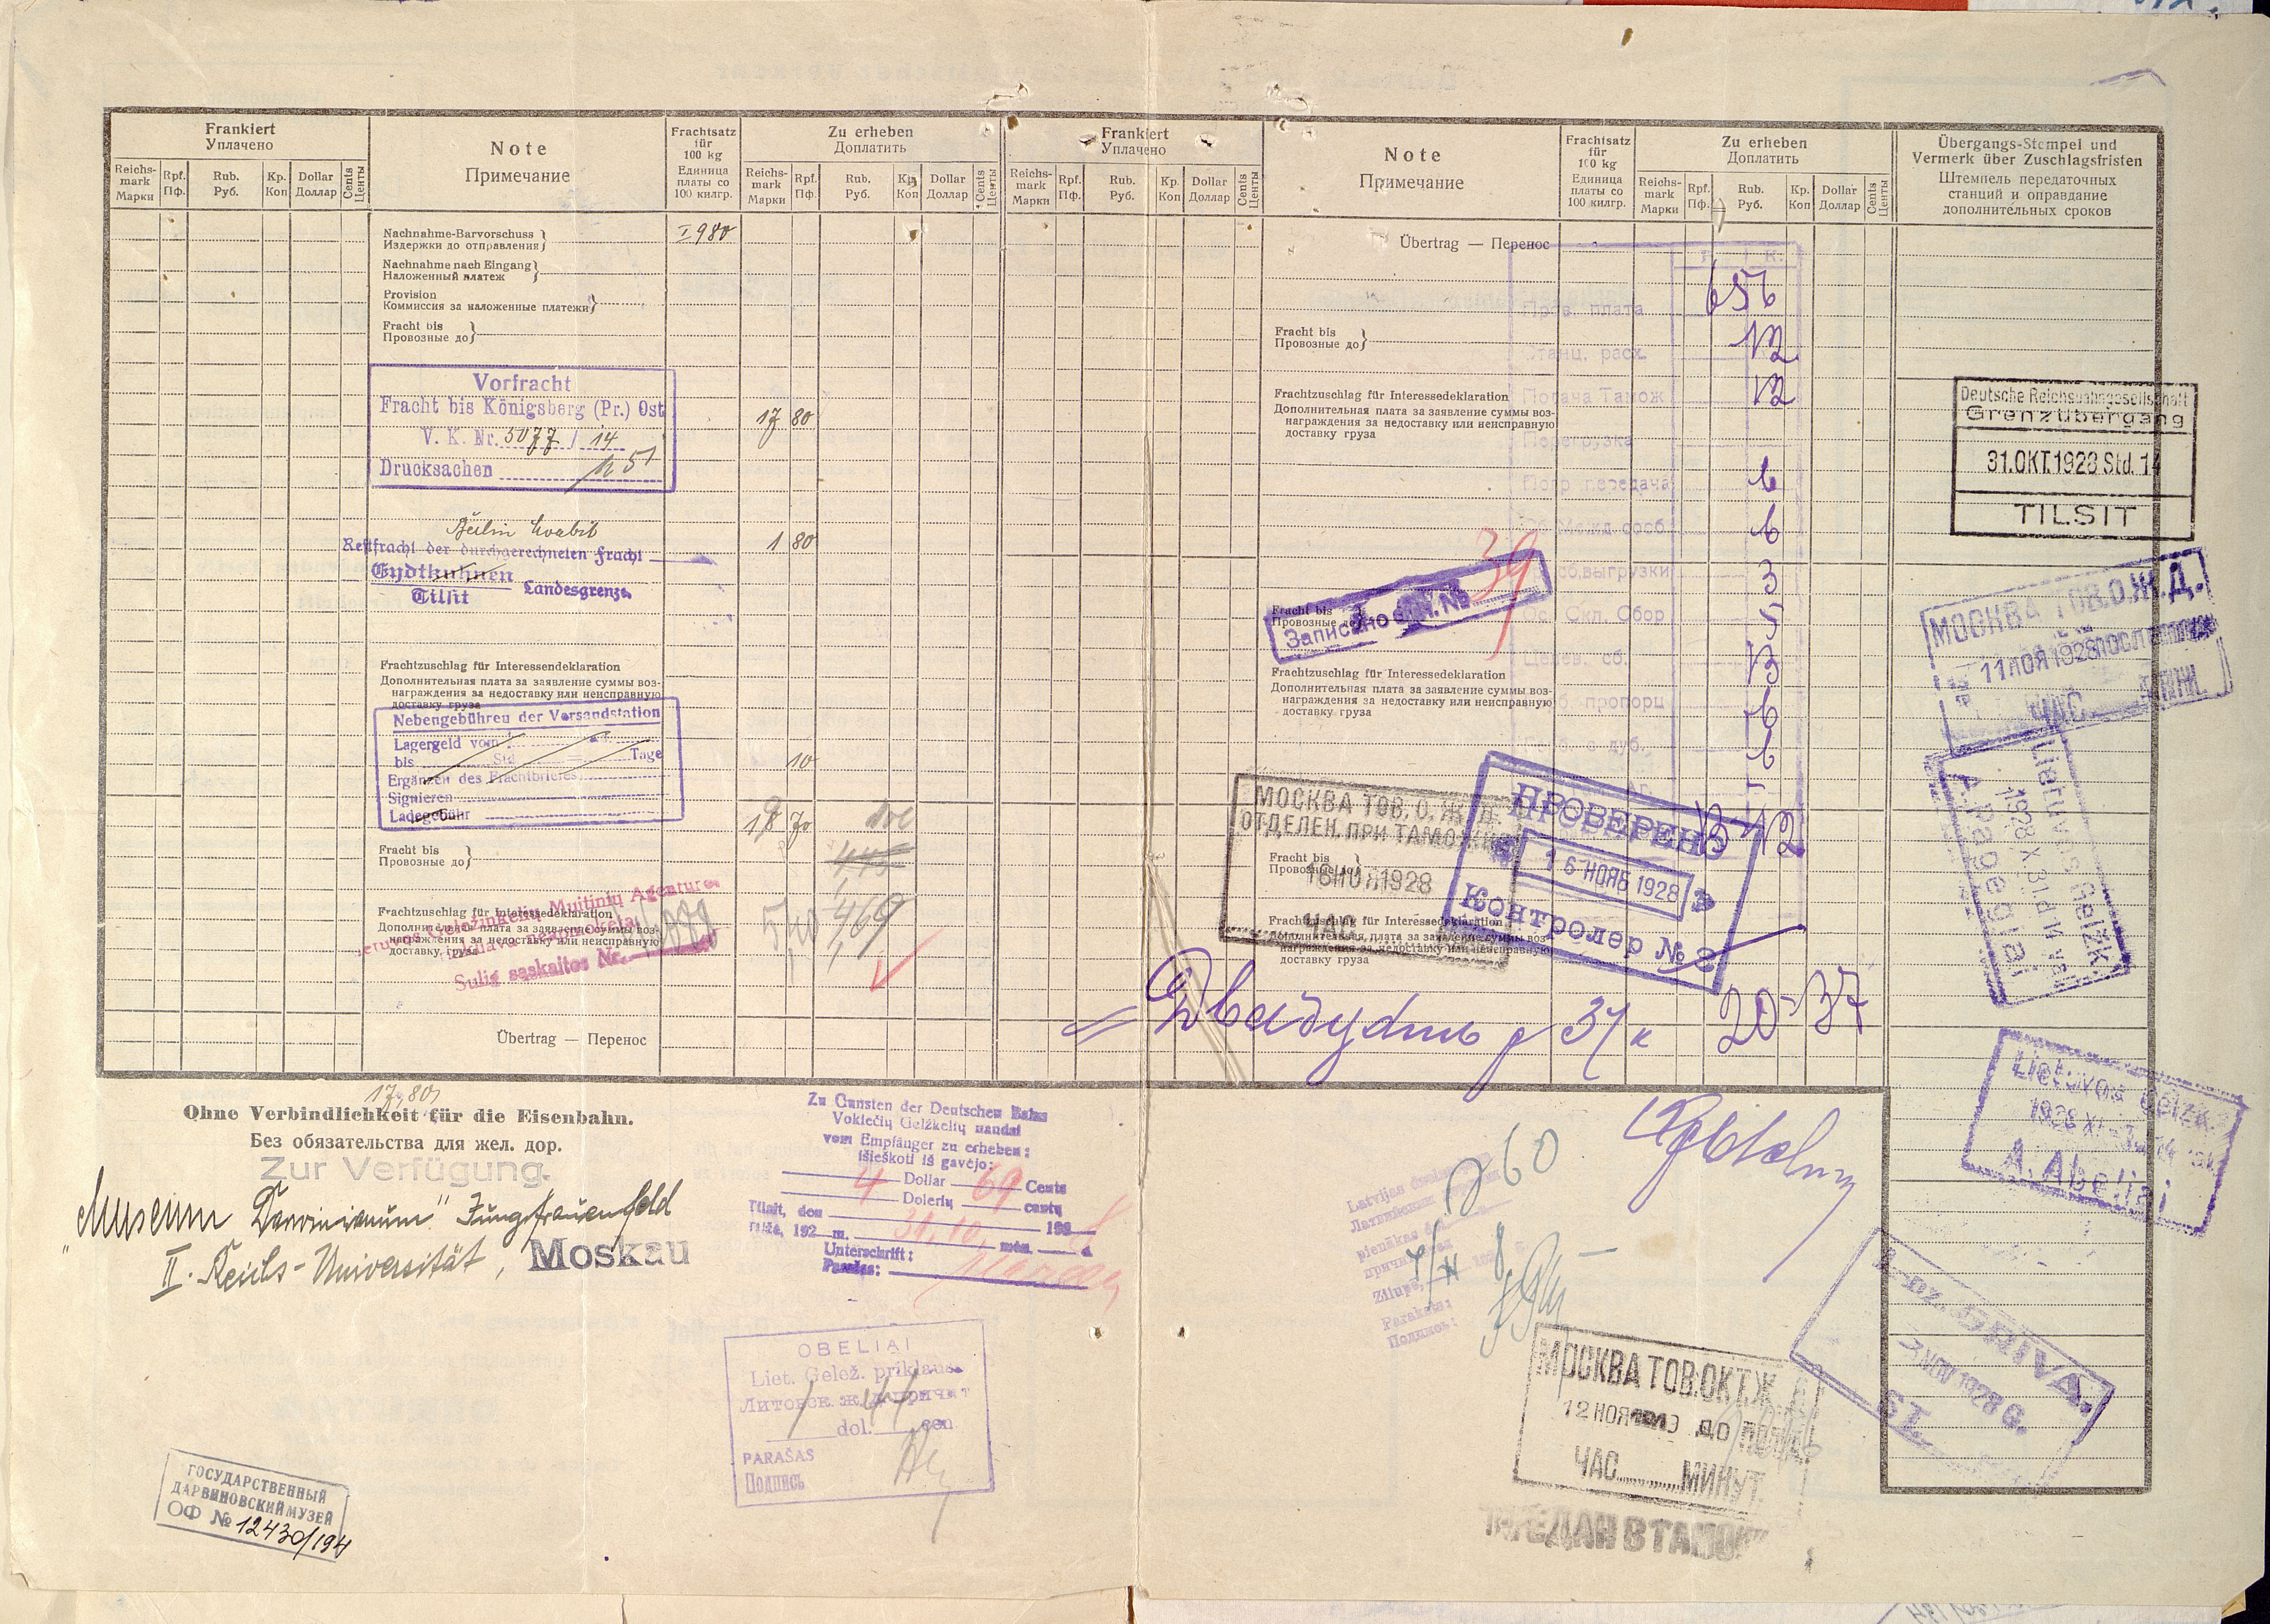 Frankiert
Уплачено
Note
Примечание
Frachtsatz
für
100 kg
Единица
платы со
100 килгр.
Zu erheben
Доплатить
Frankiert
Уплачено
Note
Примечание
Frachtsatz
für
100 kg
Единица
платы со
100 килгр.
Zu erheben
Доплатить
Übergangs-Stempel und
Vermerk über Zuschlagsfristen
Штемпель передаточных
станций и оправдание
дополнительных сроков
Reichs-
mark
Марки
Rpf.
Пф.
Rub.
Руб.
Kp.
Коп
Dollar
Доллар
Cents
Центы
Reichs-
mark
Марки
Rpf.
Пф.
Rub.
Руб.
Kp.
Коп
Dollar
Доллар
Cents
Центы
Reichs-
mark
Марки
Rpf.
Пф.
Rub.
Руб.
Kp.
Коп
Dollar
Доллар
Cents
Центы
Reichs-
mark
Марки
Rpf.
Пф.
Rub.
Руб.
Kp.
Коп
Dollar
Доллар
Cents
Центы
Nachnahme-Barvorschuss
Издержки до отправления
I 980
Nachnahme nach Eingang
Наложенный платеж
Provision
Комиссия за наложенные платежи
Fracht bis
Провозные до
Vorfracht
Fracht bis Königsberg (Pr.) Ost
V. K. Nr. 5077 / 14
Drucksachen
17 80
Berlin Moabit
Restfracht der durchgerechneten Fracht
Eydtkuhnen
Tilsit
Landesgrenze
1 80
Frachtzuschlag für Interessendeklaration
Дополнительная плата за заявление суммы воз-
награждения за недоставку или неисправную
доставку груза
Nebengebühren der Versandstation
Lagergeld vom
bis Std Tage
Ergänzen des Frachtbriefes
Signieren
Ladegebühr
10
19 70
Fracht bis
Провозные до
Frachtzuschlag für Interessedeklaration
Дополнительная плата за заявление суммы воз-
награждения за недоставку или неисправную
доставку, груза
Geležinkelių Muitinių Agentūros
Sulig sąskaitos Nr.
4,69
Übertrag — Перенос
Übertrag — Перенос
Р. К.
Пров. плата
656
Станц. расх.
12
Fracht bis
Провозные до
Подача Тамож
12
Frachtzuschlag für Interessedeklaration
Дополнительная плата за заявление суммы воз-
награждения за недоставку или неисправную
доставку груза
Перегрузка
Погр передача
выгрузки
3
Скл. Сбор
5
Целев. сб.
39
Fracht bis
Провозные до
Frachtzuschlag für Interessedeklaration
Дополнительная плата за заявление суммы воз-
награждения за недоставку или неисправную
доставку груза
ПРОВЕРЕНО
16 НОЯБ 1928
Контролер № 2
МОСКВА ТОВ. О. Ж. Д.
ОТДЕЛЕН. ПРИ ТАМОЖНЕ
16 НОЯ 1928
ЧАС
Fracht bis
Провозные до
Frachtzuschlag für Interessedeklaration
Дополнительная плата за заявление суммы воз-
награждения за недоставку или неисправную
доставку груза
Двадцать р 37 к
20-37
Deutsche Reichsbahngesellschaft
Grenzübergang
31.OKT.1928 Std. 14
TILSIT
МОСКВА ТОВ.О.Ж.Д.
11 НОЯ 1928
ЧАС МИН.
Lietuvos Gelžk.
1928 X 31 d 14 val
A. Pagėgiai
Lietuvos Gelžk.
1928 XI
A. Abeliai
GRIVA.
3 NOV 1928 G.
ST.
17,80
Ohne Verbindlichkeit für die Eisenbahn.
Без обязательства для жел. дор.
Zur Verfügung.
„Museum Darwinianum" Jungfrauenfeld
II. Reichs-Universität, Moskau
Zu Gunsten der Deutschen Bahn
Vokiečių Gelžkelių naudai
vom Empfänger zu erheben:
išieškoti iš gavėjo:
4 Dollar 69 Cents
Dolerių centų
Tilsit, den 31.10. 1928
Tilžė, 192 m. mėn. d.
Unterschrift:
Parašas:
OBELIAI
Liet. Gelež. priklauso
Литовск. ж. д. причит
1 dol. 44 cen
PARAŠAS
Подпись
260
Latvijas
Латвийским
pienākas
Zilupē,
Paraksts:
Подпись:
МОСКВА ТОВ.ОКТ.Ж
12 НОЯ ДО
ЧАС МИНУТ.
ПЕРЕДАН В ТАМОЖ
ГОСУДАРСТВЕННЫЙ
ДАРВИНОВСКИЙ МУЗЕЙ
ОФ № 12430/194